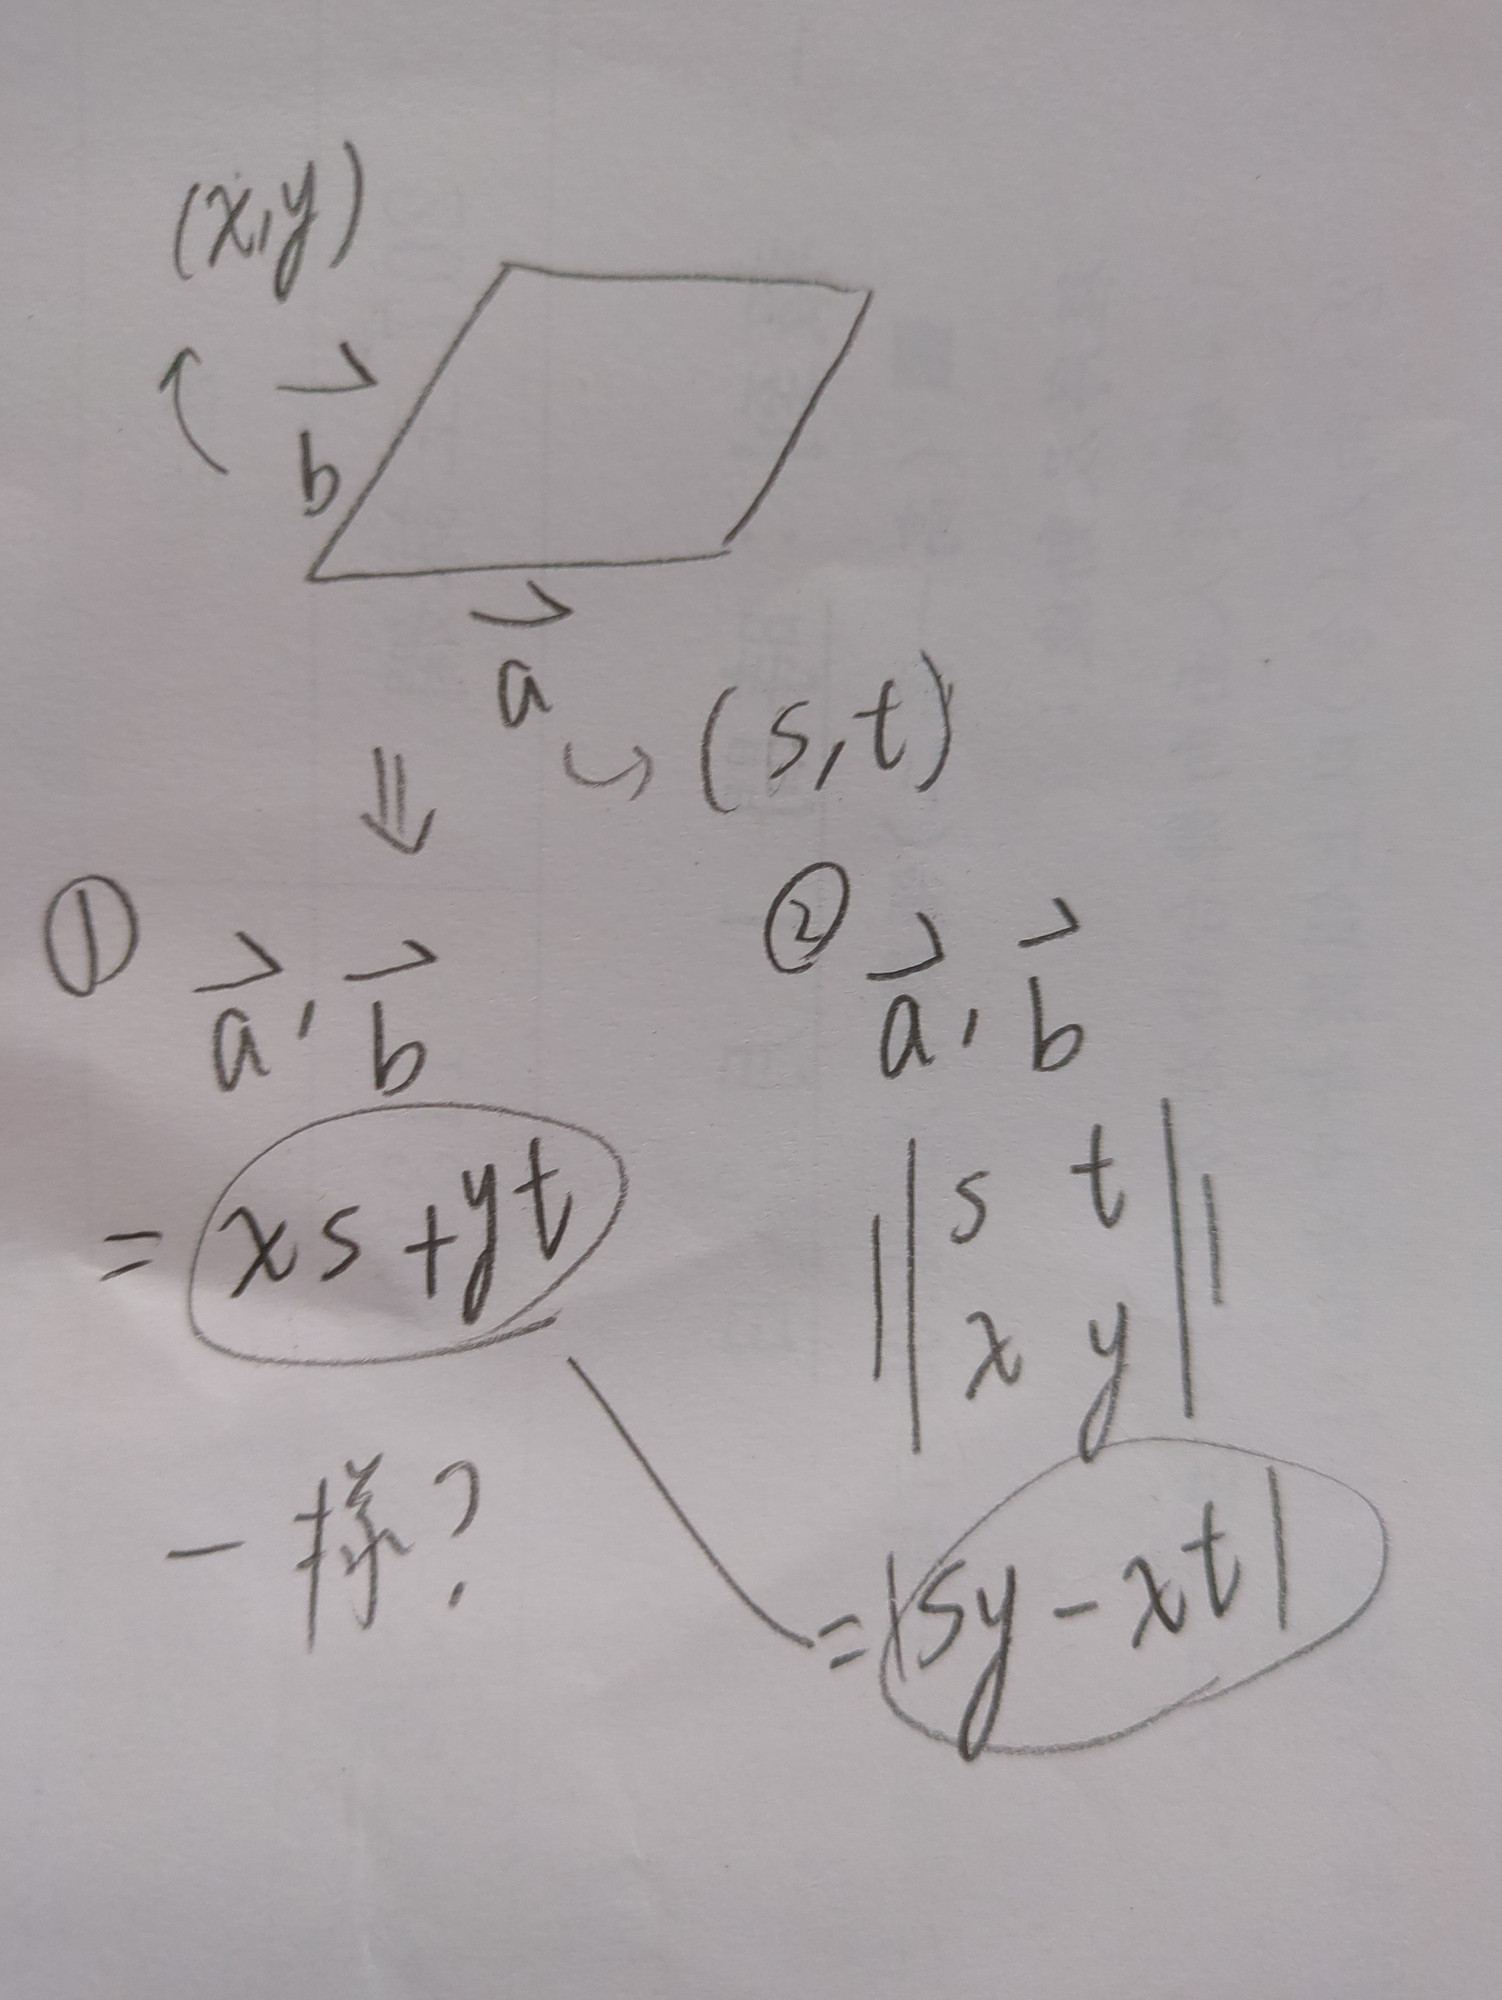 (x,y)
b
a
(s,t)
⇓
① a, b
= xs+yt
② a, b
||s t||
||x y||
一樣?
=|sy-xt|